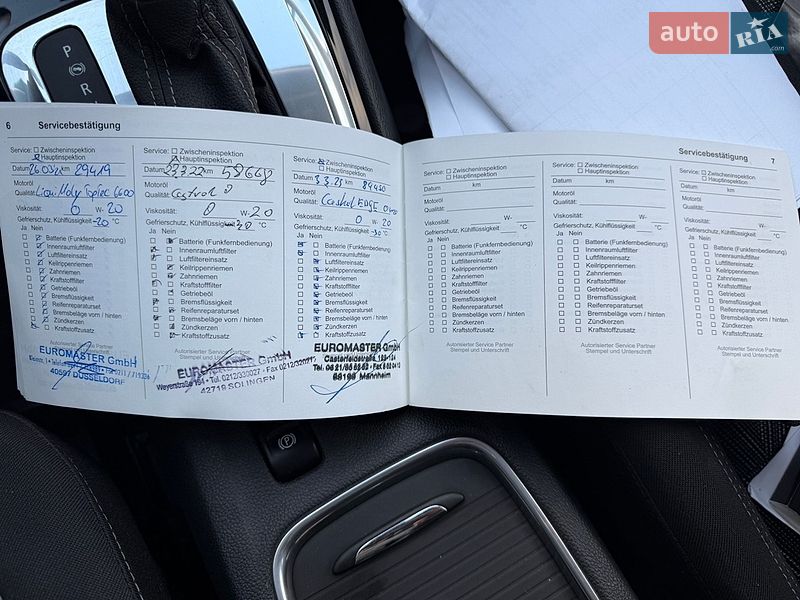 auto RIA .com
P
R
6 Servicebestätigung
Service: Zwischeninspektion
Hauptinspektion
Datum km 29419
Motoröl
Qualität: Liqui Moly TopTec 6600
Viskosität: 0 W- 20
Gefrierschutz, Kühlflüssigkeit -20 °C
Ja Nein
Batterie (Funkfernbedienung)
Innenraumluftfilter
Luftfiltereinsatz
Keilrippenriemen
Zahnriemen
Kraftstofffilter
Getriebeöl
Bremsflüssigkeit
Reifenreparaturset
Bremsbeläge vorn / hinten
Zündkerzen
Kraftstoffzusatz
EUROMASTER GmbH
40597 DÜSSELDORF
Service: Zwischeninspektion
Hauptinspektion
Datum 23.3.22 km 58668
Motoröl
Qualität: Castrol
Viskosität: 0 W- 20
Gefrierschutz, Kühlflüssigkeit °C
Ja Nein
Batterie (Funkfernbedienung)
Innenraumluftfilter
Luftfiltereinsatz
Keilrippenriemen
Zahnriemen
Kraftstofffilter
Getriebeöl
Bremsflüssigkeit
Reifenreparaturset
Bremsbeläge vorn / hinten
Zündkerzen
Kraftstoffzusatz
Autorisierter Service Partner
Stempel und Unterschrift
EUROMASTER GmbH
Weyerstraße Tel. 0212/320027 Fax
42719 SOLINGEN
Service: Zwischeninspektion
Hauptinspektion
Datum 3.3.23 km 84450
Motoröl
Qualität: Castrol EDGE
Viskosität: 0 W- 20
Gefrierschutz, Kühlflüssigkeit -30 °C
Ja Nein
Batterie (Funkfernbedienung)
Innenraumluftfilter
Luftfiltereinsatz
Keilrippenriemen
Zahnriemen
Kraftstofffilter
Getriebeöl
Bremsflüssigkeit
Reifenreparaturset
Bremsbeläge vorn / hinten
Zündkerzen
Kraftstoffzusatz
EUROMASTER GmbH
Casterfeldstraße
Mannheim
Servicebestätigung 7
Service: Zwischeninspektion
Hauptinspektion
Datum km
Motoröl
Qualität:
Viskosität: W-
Gefrierschutz, Kühlflüssigkeit °C
Ja Nein
Batterie (Funkfernbedienung)
Innenraumluftfilter
Luftfiltereinsatz
Keilrippenriemen
Zahnriemen
Kraftstofffilter
Getriebeöl
Bremsflüssigkeit
Reifenreparaturset
Bremsbeläge vorn / hinten
Zündkerzen
Kraftstoffzusatz
Autorisierter Service Partner
Stempel und Unterschrift
Service: Zwischeninspektion
Hauptinspektion
Datum km
Motoröl
Qualität:
Viskosität: W-
Gefrierschutz, Kühlflüssigkeit °C
Ja Nein
Batterie (Funkfernbedienung)
Innenraumluftfilter
Luftfiltereinsatz
Keilrippenriemen
Zahnriemen
Kraftstofffilter
Getriebeöl
Bremsflüssigkeit
Reifenreparaturset
Bremsbeläge vorn / hinten
Zündkerzen
Kraftstoffzusatz
Autorisierter Service Partner
Stempel und Unterschrift
Service: Zwischeninspektion
Hauptinspektion
Datum km
Motoröl
Qualität:
Viskosität: W-
Gefrierschutz, Kühlflüssigkeit °C
Ja Nein
Batterie (Funkfernbedienung)
Innenraumluftfilter
Luftfiltereinsatz
Keilrippenriemen
Zahnriemen
Kraftstofffilter
Getriebeöl
Bremsflüssigkeit
Reifenreparaturset
Bremsbeläge vorn / hinten
Zündkerzen
Kraftstoffzusatz
Autorisierter Service Partner
Stempel und Unterschrift